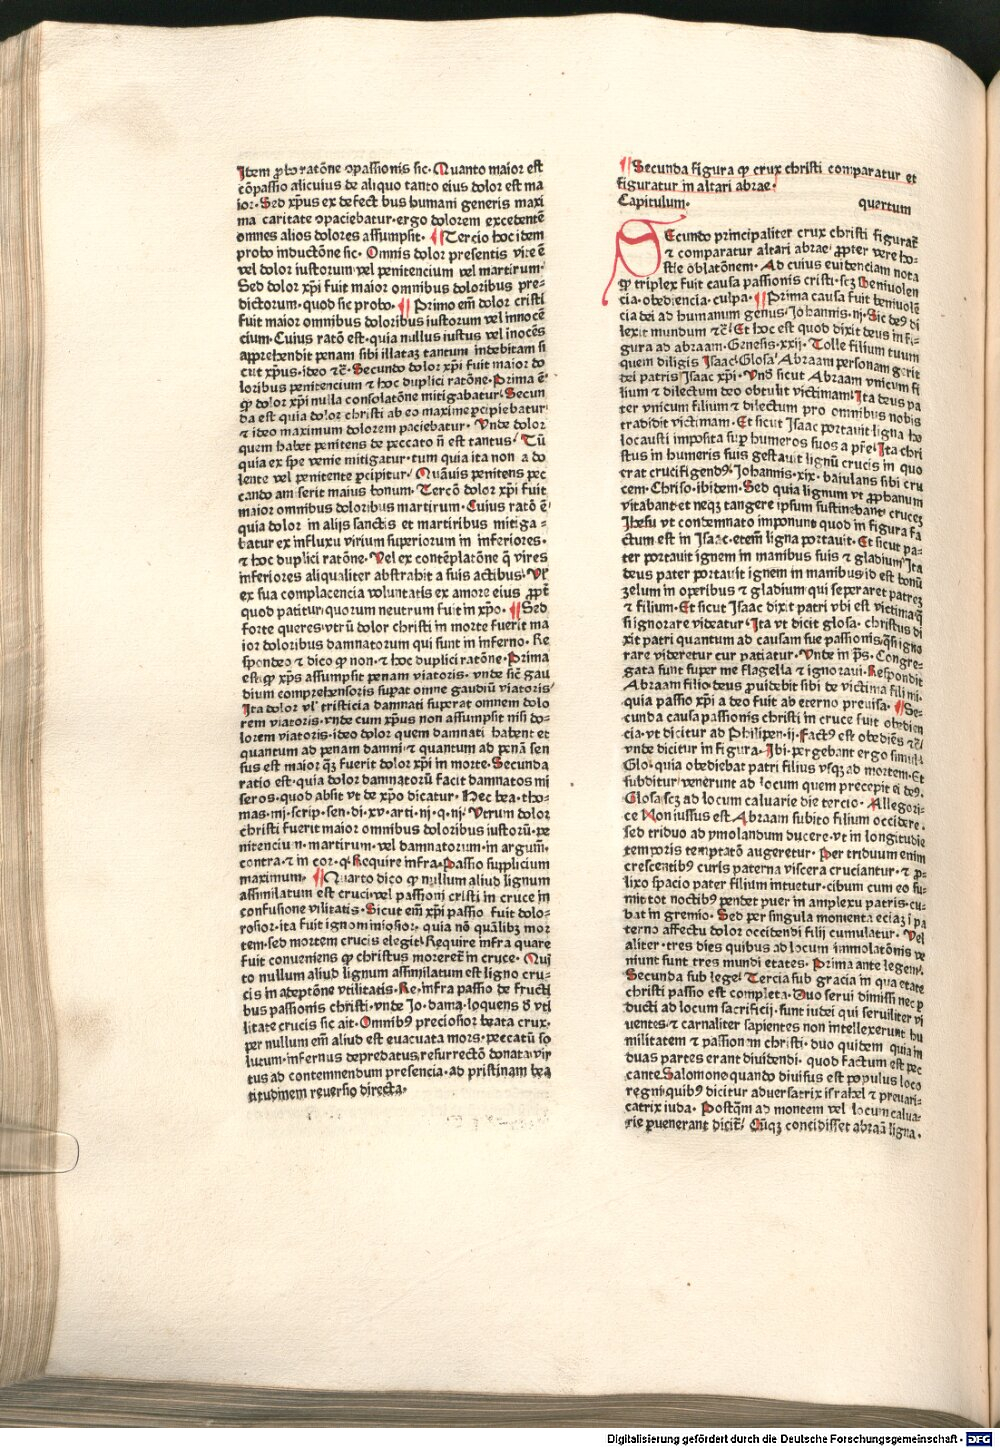 Item ꝓbo ratōne ɔpassionis sic· Quanto maior est
cōpassio alicuius de aliquo tanto eius dolor est ma
ior· Sed xp̄us ex defect bus humani generis maxi
ma caritate ɔpaciebatur· ergo dolorem excedentē
omnes alios dolores assumpsit· ¶ Tercio hoc idem
probo inductōne sic· Omnis dolor presentis vite ē
vel dolor iustorum vel penitencium vel martirum·
Sed dolor xp̄i fuit maior omnibus doloribus pre-
dictorum· quod sic probo· ¶ Primo em̄ dolor cristi
fuit maior omnibus doloribus iustorum vel innocē
cium· Cuius ratō est· quia nullus iustus vel inocēs
apprehendit penam sibi illataʒ tantum indebitam si
cut xp̄us· ideo ⁊c̄· Secundo dolor xp̄i fuit maior do
loribus penitencium ⁊ hoc duplici ratōne· Prima ē·
ꝙ dolor xp̄i nulla consolatōne mitigabatur· Secun
da est quia dolor christi ab eo maxime ꝑcipiebatur
⁊ ideo maximum dolorem paciebatur· Vnde dolor
quem habet penitens de peccato n̄ est tantus· Tū
quia ex spe venie mitigatur· tum quia ita non a do
lente vel penitente ꝑcipitur· Quāuis penitens pec
cando am serit maius bonum· Tercō dolor xp̄i fuit
maior omnibus doloribus martirum· Cuius ratō ē·
quia dolor in alijs sanctis et martiribus mitiga-
batur ex influxu virium superiorum in inferiores·
⁊ hoc duplici ratōne· Vel ex contēplatōne q̄ vires
inferiores aliqualiter abstrahit a suis actibus· Vl̓
ex sua complacencia voluntatis ex amore eius ꝓpt̄
quod patitur· quorum neutrum fuit in xp̄o· ¶ Sed
forte queres· vtrū dolor christi in morte fuerit ma
ior doloribus damnatorum qui sunt in inferno· Re
spondeo ⁊ dico ꝙ non· ⁊ hoc duplici ratōne· Prima
est· ꝙ xp̄s assumpsit penam viatoris· vnde sic̄ gau
dium comprehensoris suꝑat omne gaudiū viatoris·
Ita dolor vl̓ tristicia damnati superat omnem dolo
rem viatoris· vnde cum xp̄us non assumpsit nisi do-
lorem viatoris· ideo dolor quem damnati habent et
quantum ad penam damni· ⁊ quantum ad penā sen
sus est maior qʒ fuerit dolor xp̄i in morte· Secunda
ratio est· quia dolor damnatorū facit damnatos mi
seros· quod absit vt de xp̄o dicatur· Hec bea· tho-
mas· iij· scrip· sen· di· xv· arti· iij· q· iij· Vtrum dolor
christi fuerit maior omnibus doloribus iustorū· pe
nitenciu n· martirum· vel damnatorum· in argum̄·
contra· ⁊ in cor· q̓· Require infra· Passio supplicium
maximum· ¶ Quarto dico ꝙ nullum aliud lignum
assimilatum est cruci· vel passioni cristi in cruce in
confusione vilitatis· Sicut em̄ xp̄i passio fuit dolo-
rosior· ita fuit ignominiosior· quia nō qualibʒ mor
tem· sed mortem crucis elegit· Require infra quare
fuit conueniens ꝙ christus moreret̄ in cruce· Qui
to nullum aliud lignum assimilatum est ligno cru-
cis in adeptōne vtilitatis· Re· infra passio de fructi
bus passionis christi· vnde Jo· dama· loquens d̄ vti
litate crucis sic ait· Omnibꝰ preciosior beata crux·
per nullum em̄ aliud est euacuata mors· peccatū so
lutum· infernus depredatus· resurrectō donata· vir
tus ad contemnendum presencia· ad pristinam bea
titudinem reuersio directa·
¶ Secunda figura ꝙ crux christi comparatur et
figuratur in altari abrae·
Capitulum· quartum
SEcundo principaliter crux christi figurat̄
⁊ comparatur altari abrae· ꝓpter vere ho-
stie oblatōnem· Ad cuius euidenciam nota
ꝙ triplex fuit causa passionis cristi· scʒ beniuolen
cia· obediencia· culpa· ¶ Prima causa fuit beniuolē
cia dei ad humanum genus· Johannis· iij· Sic deꝰ di
lexit mundum ⁊c̄· Et hoc est quod dixit deus in fi-
gura ad abraam· Genesis· xxij· Tolle filium tuum
quem diligis Isaac· Glosa· Abraam personam gerit
dei patris Isaac xp̄i· Vnd̓ sicut Abraam vnicum fi
lium ⁊ dilectum deo obtulit victimam· Ita deus pa
ter vnicum filium ⁊ dilectum pro omnibus nobis
tradidit victimam· Et sicut Isaac portauit ligna ho
locausti imposita suꝑ humeros suos a pr̄e· Ita chri
stus in humeris suis gestauit lignū crucis in quo
erat crucifigendꝰ· Johannis· xix· baiulans sibi cru
cem· Chriso· ibidem· Sed quia lignum vt ꝓphanum
vitabant· et neqʒ tangere ipsum sustinebant· cruceʒ
Ihesu vt condemnato imponunt quod in figura fa
ctum est in Isaac· etem̄ ligna portauit· Et sicut pa-
ter portauit ignem in manibus suis ⁊ gladium· Ita
deus pater portauit ignem in manibus· id est bonū
zelum in operibus ⁊ gladium qui seperaret patreʒ
⁊ filium· Et sicut Isaac dixit patri vbi est victima q̓
si ignorare videatur· Ita vt dicit glosa· christus di
xit patri quantum ad causam sue passionis· q̄si igno
rare videretur cur patiatur· Vnde in ps̄· Congre-
gata sunt super me flagella ⁊ ignoraui· Respondit
Abraam filio· deus ꝓuidebit sibi de victima fili mi·
quia passio xp̄i a deo fuit ab eterno preuisa· ¶ Se-
cunda causa passionis christi in cruce fuit obedien
cia· vt dicitur ad Philipen· ij· Factꝰ est obediēs ⁊c̄·
vnde dicitur in figura· Ibi· pergebant ergo simul·
Glo· quia obediebat patri filius vsqʒ ad mortem· Et
subditur· venerunt ad locum quem precepit ei deꝰ·
Glosa· scʒ ad locum caluarie die tercio· Allegori-
ce Non iussus est Abraam subito filium occidere·
sed triduo ad ymolandum ducere· vt in longitudie
temporis temptatō augeretur· Per triduum enim
crescentibꝰ curis paterna viscera cruciantur· ⁊ ꝓ-
lixo spacio pater filium intuetur· cibum cum eo su-
mit· tot noctibꝰ pendet puer in amplexu patris· cu-
bat in gremio· Sed per singula momenta eciaʒ i pa
terno affectu dolor occidendi filij cumulatur· Vel
aliter· tres dies quibus ad locum immolatōnis ve
niunt sunt tres mundi etates· Prima ante legem·
Secunda sub lege· Tercia sub gracia in qua etate
christi passio est completa· Duo serui dimissi nec ꝓ
ducti ad locum sacrificij· sunt iudei qui seruiliter vi
uentes· ⁊ carnaliter sapientes non intellexerunt hu
militatem ⁊ passion m christi· duo quidem quia in
duas partes erant diuidendi· quod factum est pec
cante Salomone quando diuisus est populus loco
regni quibꝰ dicitur aduersatrix israhel ⁊ preuari-
catrix iuda· Postq̄m ad montem vel locum calua-
rie ꝑuenerant dicit̄· Cūqʒ concidisset abraā ligna·
Digitalisierung gefördert durch die Deutsche Forschungsgemeinschaft - DFG